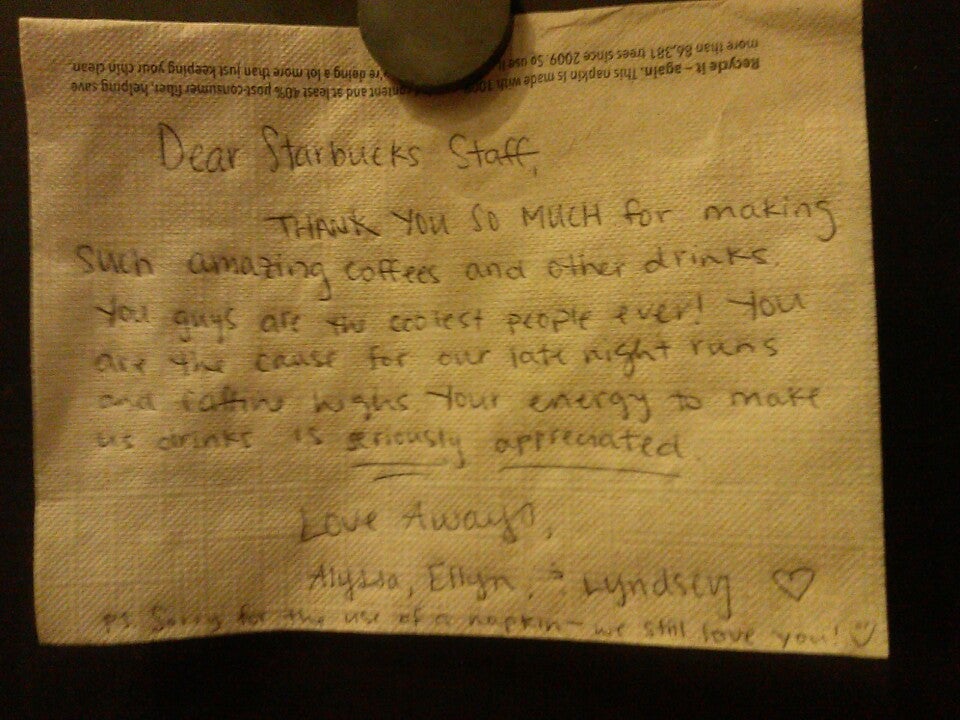 more than 86,381 trees since 2009. So use
Recycle it – again. This napkin is made with 100% content and at least 40% post-consumer fiber, helping save
're doing a lot more than just keeping your chin clean.
Dear Starbucks Staff,
THANK YOU SO MUCH for making
such amazing coffees and other drinks.
You guys are the coolest people ever! You
are the cause for our late night runs
and highs. Your energy to make
us drinks is seriously appreciated.
Love Aways,
Alyssa, Ellyn, & Lyndsey ♡
ps. Sorry for the use of a napkin – we still love you! :)